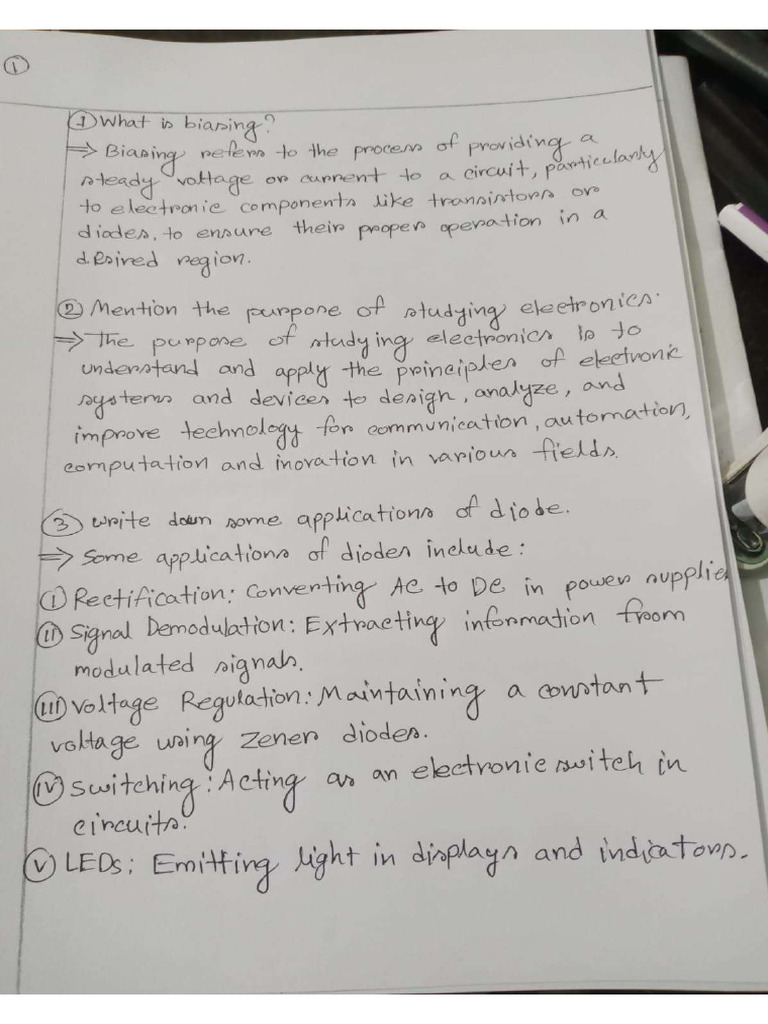 ①
① What is biasing?
⇒ Biasing refers to the process of providing a
steady voltage or current to a circuit, particularly
to electronic components like transistors or
diodes, to ensure their proper operation in a
desired region.
② Mention the purpose of studying electronics.
⇒ The purpose of studying electronics is to
understand and apply the principles of electronic
systems and devices to design, analyze, and
improve technology for communication, automation,
computation and inovation in various fields.
③ Write down some applications of diode.
⇒ Some applications of diodes include:
ⓘ Rectification: Converting AC to DC in power supplies
ⓘⓘ Signal Demodulation: Extracting information from
modulated signals.
ⓘⓘⓘ Voltage Regulation: Maintaining a constant
voltage using Zener diodes.
ⓘⓥ Switching: Acting as an electronic switch in
circuits.
ⓥ LEDs: Emitting light in displays and indicators.